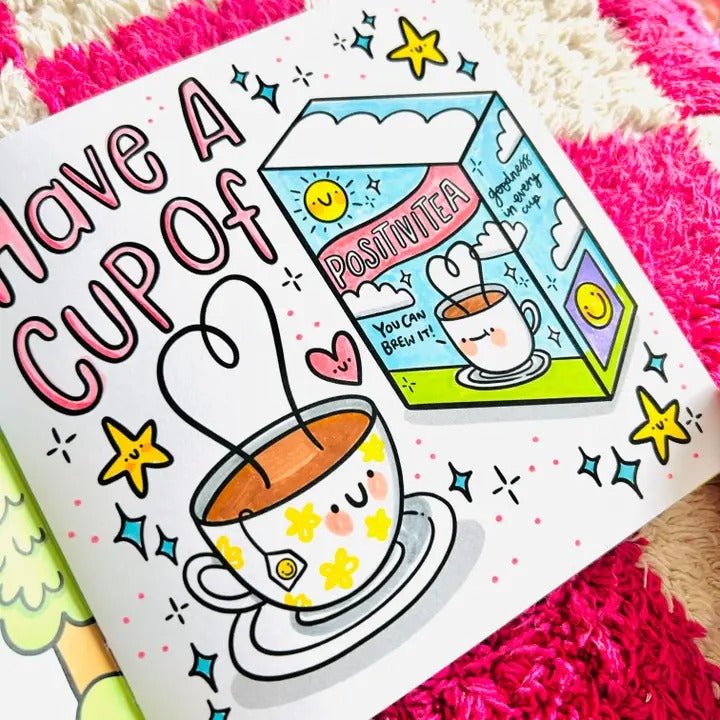 Have A
Cup Of
POSITIVITEA
YOU CAN
BREW IT!
goodness
in every
cup